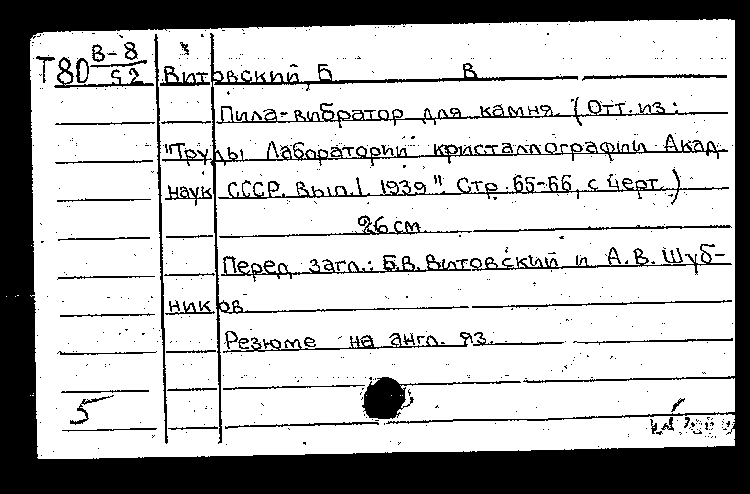 Т80 В-8
52
Витовский, Б В
Пила-вибратор для камня. (Отт. из:
"Труды Лаборатории кристаллографии Акад.
наук СССР. Вып. I. 1939". Стр. 65-66, с черт.)
26 см
Перед загл.: Б.В. Витовский и А.В. Шуб-
ников
Резюме на англ. яз.
5